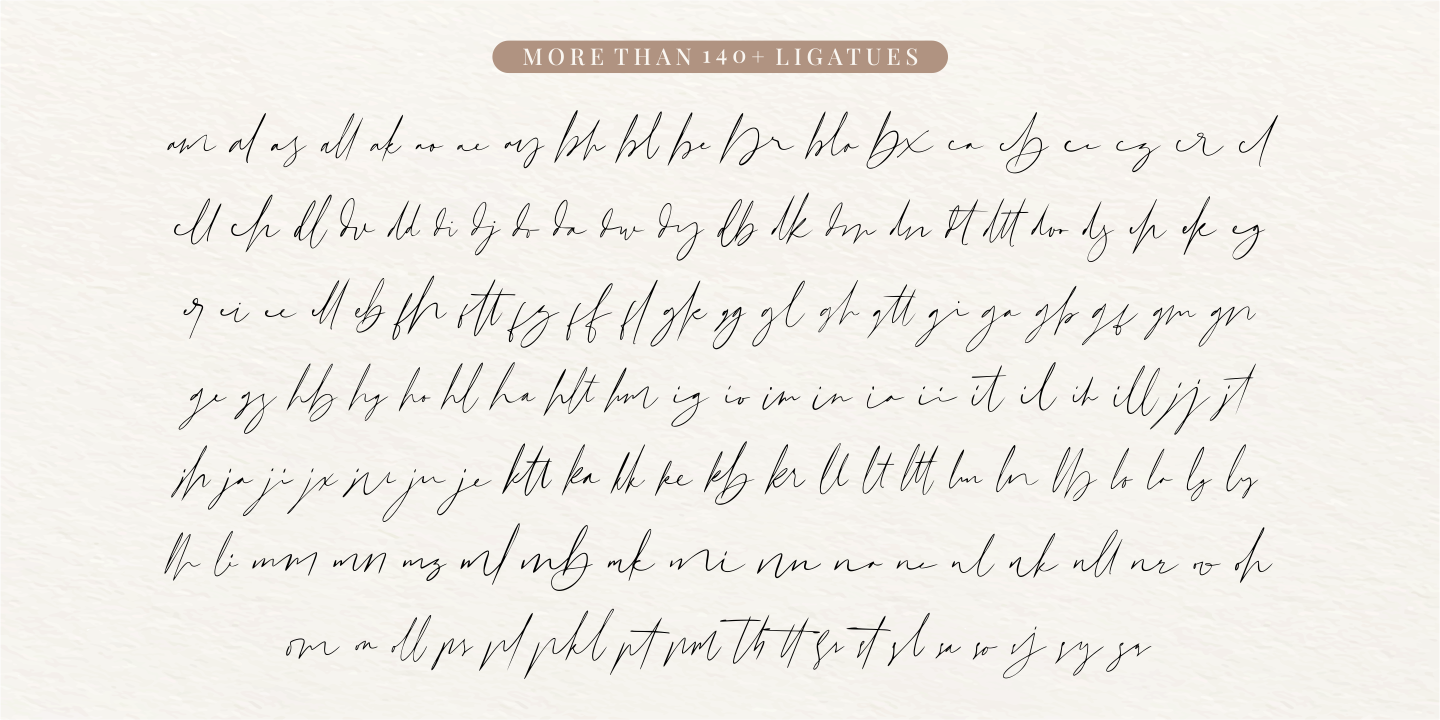 MORE THAN 140+ LIGATUES
am al as all ak ao ae ay bh bl be br blo bx ca cb ce cz cr cl
cll ch dl dv dd di dj do da dw dy db dk dm dn dt dtt doo ds eh ek eg
ei ee ell eb fh ftt fz ff fl gk gg gl gh gtt gi ga gb gf gm gn
ge gz hb hg ho hl ha hlt hm ig io im in ia ii it il ih ill jj jt
jh ja ji jx je ktt ka kk ke kb kr ll lt ltt lm ln llb lo la ls ly
llh li mm mn mz ml mb mk mi nn na ne nl nk nll nr ov oh
om on oll pr pl pkl pt pm th tt st sl sa so sj sy